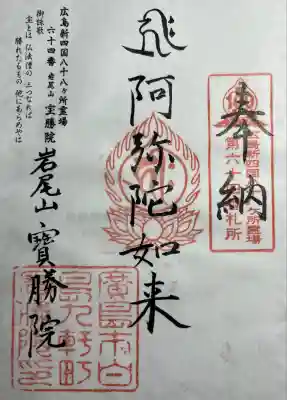 奉納
広島新四国八十八ヶ所霊場
第六十四番札所
阿弥陀如来
広島新四国八十八ヶ所霊場
六十四番 岩尾山 宝勝院
御詠歌
宝とは 仏法僧の 三つなれば
勝れたるもの 他にあらめやは
岩尾山 寳勝院
廣島市白
島九軒町